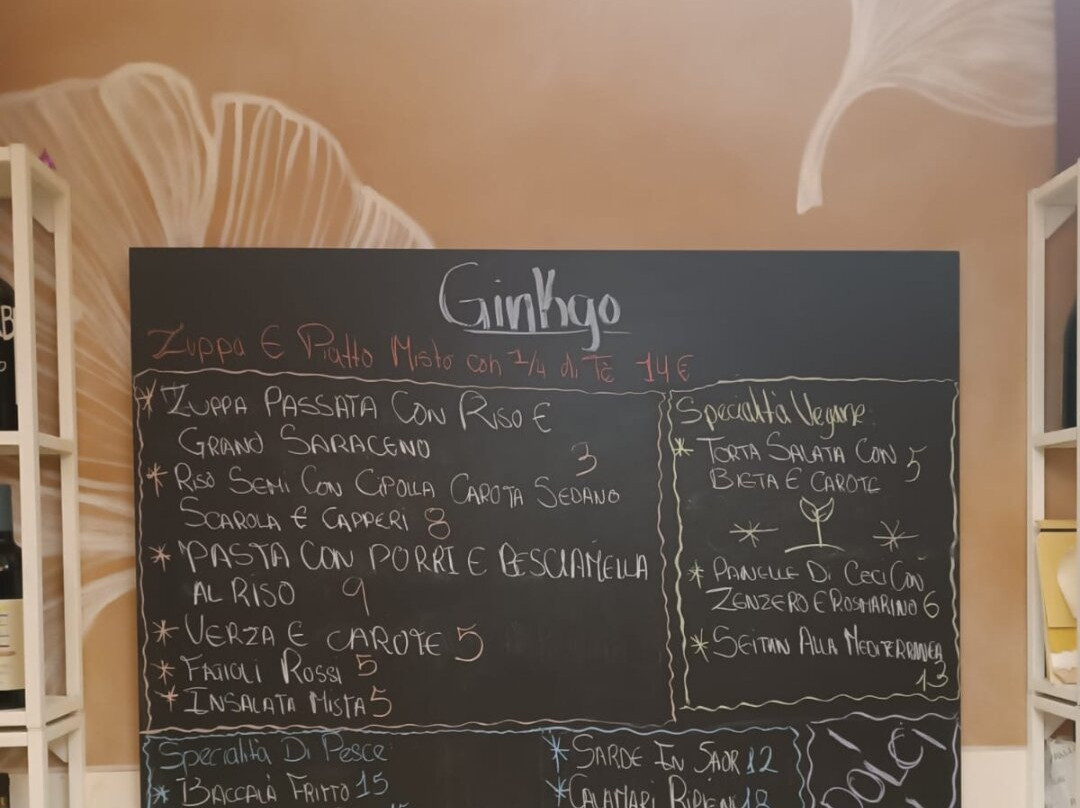 Ginkgo
Zuppa E Piatto Misto con 1/4 di Tè 14 €
* Zuppa Passata Con Riso E
Grano Saraceno 3
* Riso Semi Con Cipolla Carota Sedano
Scarola E Capperi 8
* Pasta Con Porri E Besciamella
Al Riso 9
* Verza E Carote 5
* Fagioli Rossi 5
* Insalata Mista 5
Specialità Vegane:
* Torta Salata Con 5
Bieta E Carote
* Panelle Di Ceci Con
Zenzero E Rosmarino 6
* Seitan Alla Mediterranea
13
Specialità Di Pesce
* Baccalà Fritto 15
* Sarde In Saor 12
* Calamari Ripieni 18
Dolci